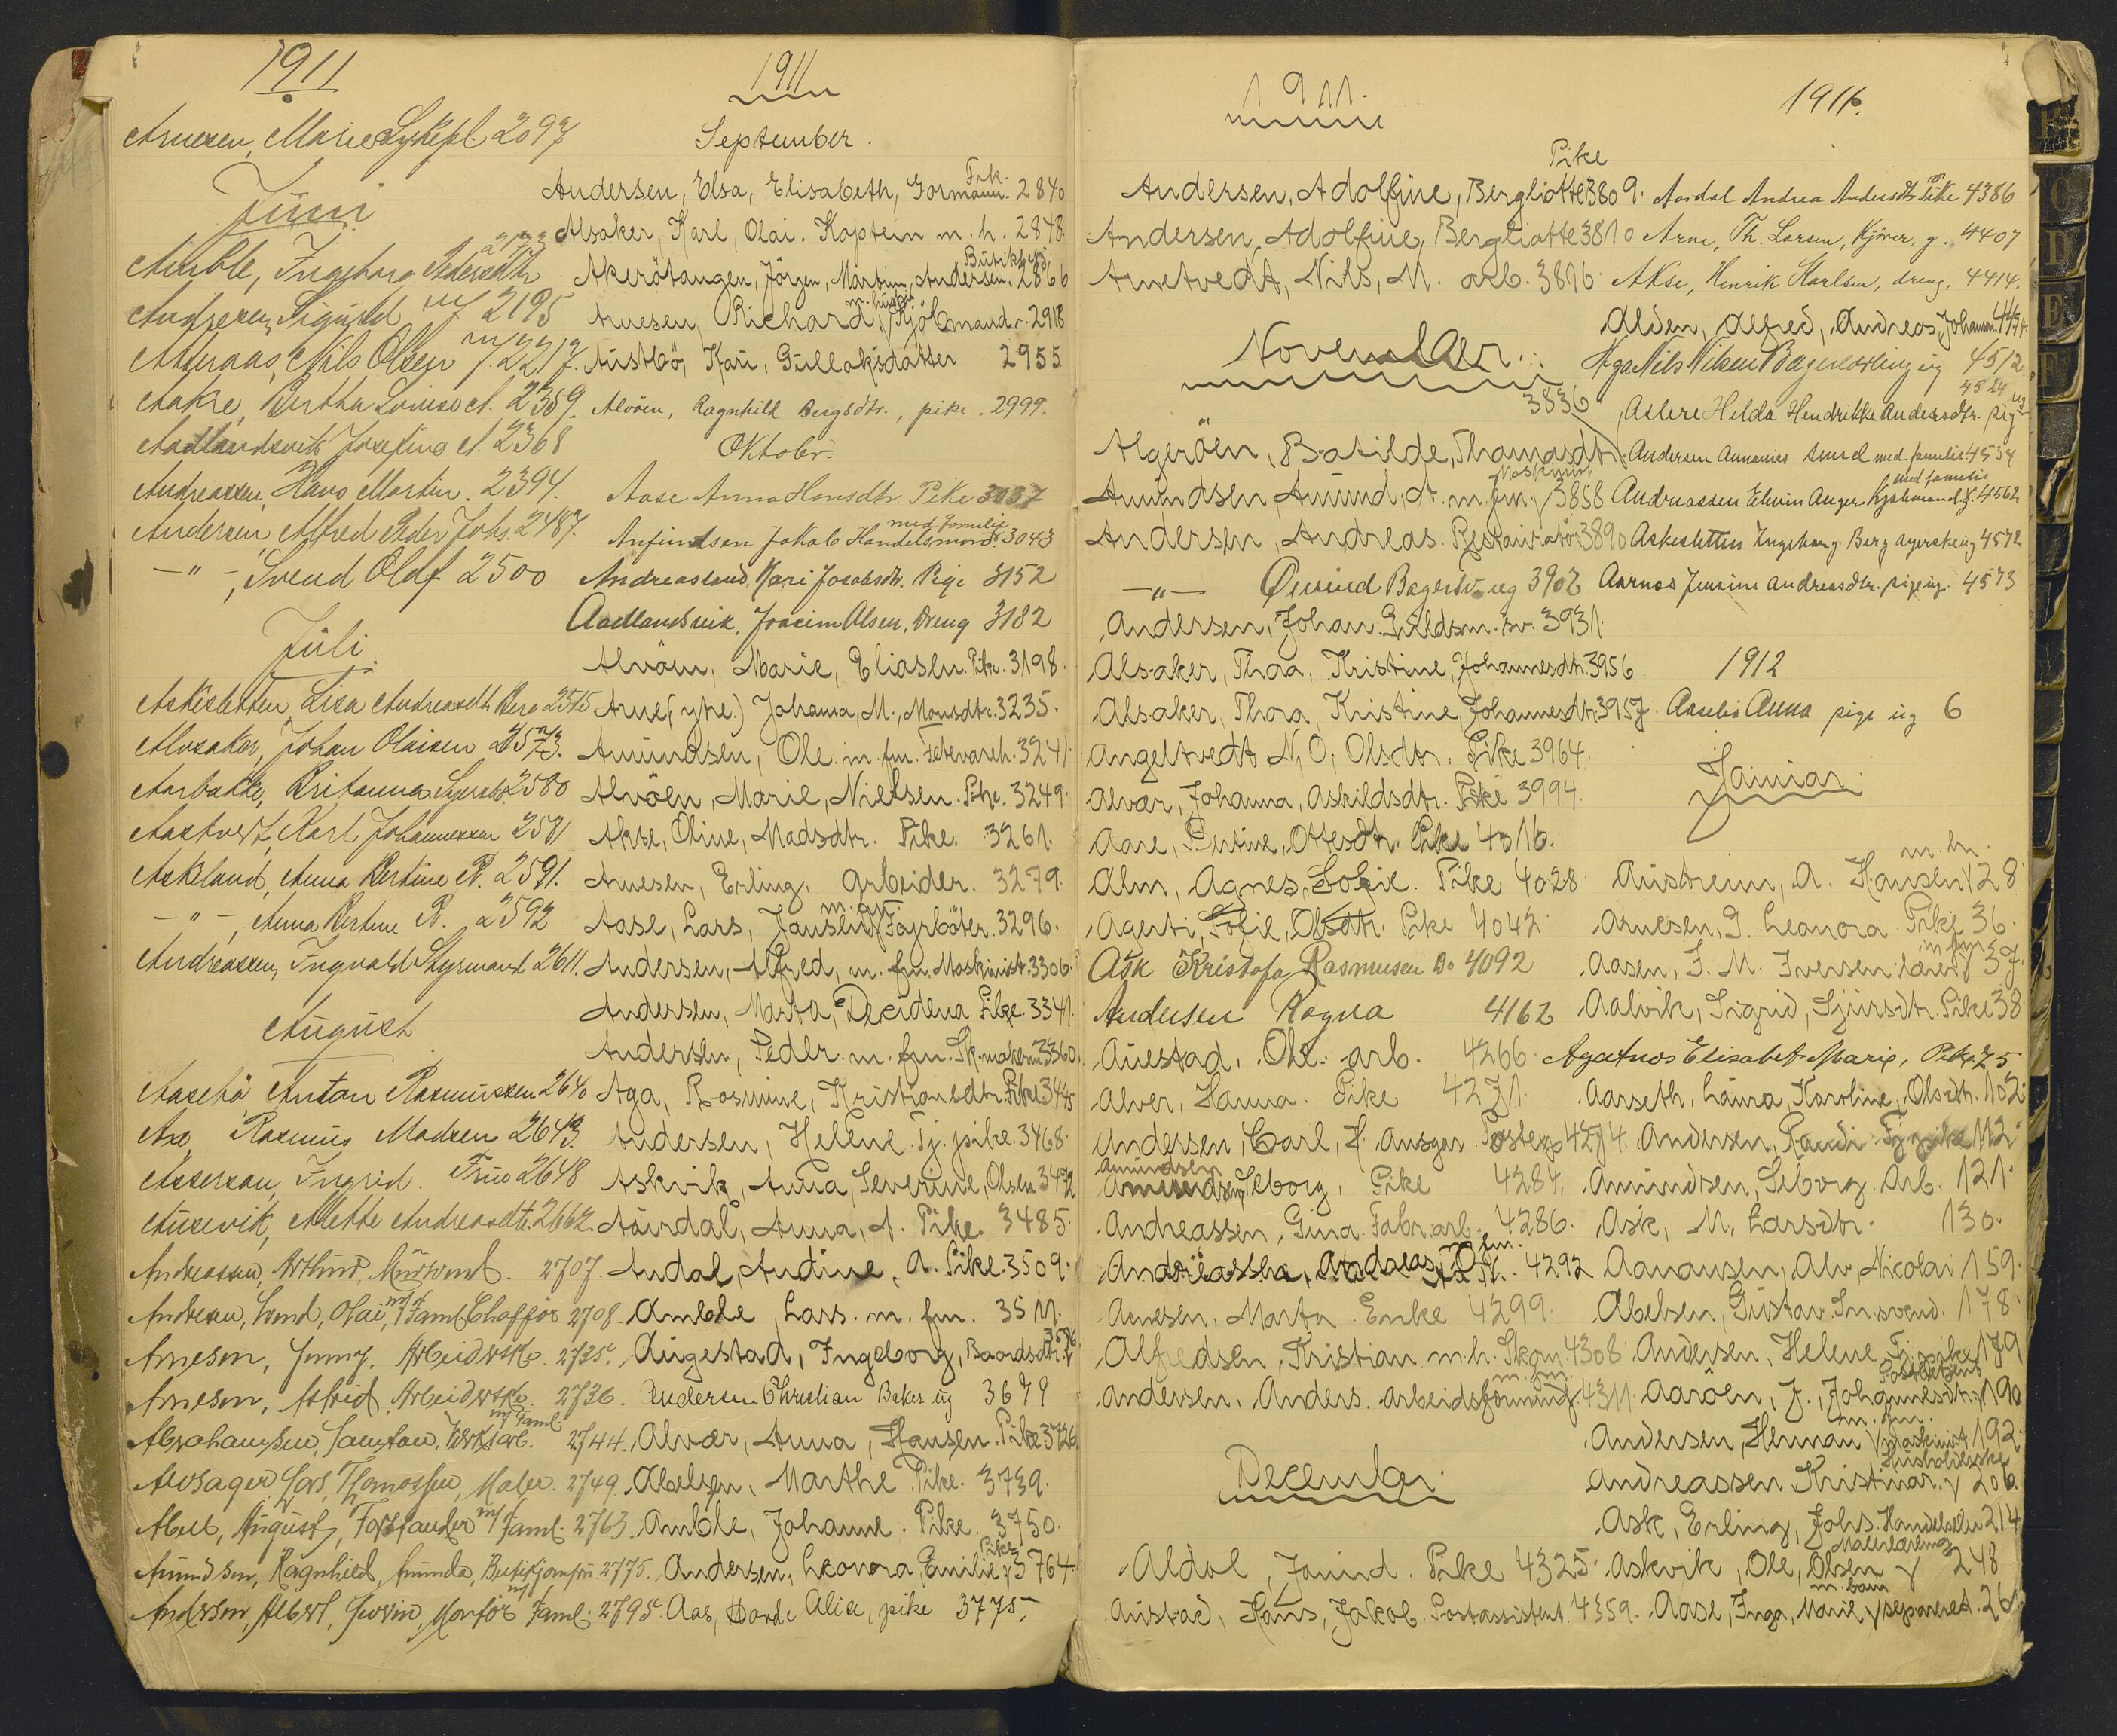 1911
Arnesen, Marie Sykepl. 2097
Juni
2173
Amble, Ingeborg Pedersdtr
Andresen, Sigurd m/f 2195
Nils Olsen m/f. 2217.
Aakre, Bertha Lovise A. 2359.
Aadlandsvik Josefine A. 2368
Andreassen, Hans Martin. 2394.
Andersen, Alfred Peder Johs. 2487.
— " —, Svend Olaf 2500
Juli
Askesletten Lisa Andreasdtr. Berg 2515
Alvsaker, Johan Olaisen 2573.
Aarbakke, Kritanna 2580
Aastvedt, Karl Johannessen 2581
Askeland, Anna Bertine R. 2591.
— " —, Anna Bertine R. 2592
Andreassen, Ingvald Styrmand 2611.
August
Aasebø, Anton Rasmussen 2640
Aas, Rasmus Madsen 2643
Asserson, Ingrid. Frue 2648
Ausevik, Mette Andreasdtr. 2662.
Andreassen, Arthur, 2707.
Andresen, Svend, Olai, m/ Faml. Chaffør 2708.
Arnesen, Jenny. Arbeidrske. 2725.
Arnesen, Astrid, Arbeidrske. 2726.
m/ Faml.
Abrahamsen, 2744.
Alvsager Lars Thomassen, Maler. 2749.
Abell, August, Forstander m/ Faml. 2763
Amundsen, Ragnhild, Amunda, Butikjomfru 2775.
Andersen, Albert, m/ Faml. 2795.
1911
September.
Frk.
Andersen, Elsa, Elisabeth, Gormann. 2840
Alsaker, Karl, Olai. Kaptein m. h. 2848.
Akerötangen, Jörgen, Martin, Andersen. 2866
m. hustru
Arnesen, Richard, Kjöbmand. 2918
Austbö, Kari, Gullaksdatter 2955
Alvöen, Ragnhild Bergsdtr., pike. 2999.
Oktober.
Aase Anna Hansdtr. Pike 3037
med familie
Anfindsen Jakob Handelsmand. 3043
Andreasland, Kari Jacobsdtr. Pige 3152
Aadlandsvik, Joacim Olsen, Dreng 3182
Alvöen, Marie, Eliasen. Pike. 3198.
Arne (ytre.) Johanna, M., Monsdtr. 3235.
Amundsen, Ole. m. fm. Fetevareh. 3241.
Alvöen, Marie, Nielsen. Pike. 3249.
Akse, Oline, Madsdtr. Pike. 3261.
Arnesen, Erling, Arbeider. 3279.
m. fm.
Aase, Lars, Jansen, Fayrböter. 3296.
Andersen, Alfred, m. fm. Maskinist. 3306.
Andersen, Marta, Decidena Pike. 3341.
Andersen, Peder. m. fm. Sk.maker 3360.
Aga, Rosmine, Kristiansdtr. Pike 3445
Andersen, Helene. Tj. pike. 3468.
Askvik, Anna, Severine, Olsen 3472
Aardal, Anna, A. Pike. 3485.
Audal, Audine, A. Pike. 3509.
Amble, Lars. m. fm. 3511.
3576
Augestad, Ingeborg, Baardsdtr.
Andersen Christian Baker ug 3679
Alvær, Anna, Hansen. Pike 3726
Abelsen, Marthe Pike. 3739.
Amble, Johanne. Pike. 3750.
Pike
Andersen, Leonora, Emilie 3764.
Aas, Dorde Alice, pike 3775.
1911.
Pike
Andersen, Adolfine, Bergliotte 3809.
Andersen, Adolfine, Bergliotte 3810
Arnetvedt, Nils, M. arb. 3816.
November.
3836
Algeröen, Batilde, Thomasdtr.
Maskinist
Amundsen Amund, A. m. fm. 3858
Andersen, Andreas. Restauratör 3890
— " — Øivind Bagersv. ug 3902
Andersen, Johan. Guldsm. sv. 3931.
Alsaker, Thoa, Kristine, Johannesdtr. 3956.
Alsaker, Thora, Kristine, Johannesdtr. 3957.
Angeltvedt N, O, Olsdtr. Pike 3964.
Alvær, Johanna, Askildsdtr. Pike 3994.
Aase, Pertine, Ottesdtr. Pike 4016.
Alm, Agnes, Sofie. Pike 4028.
Agerti, Sofie, Olsdtr. Pike 4042.
Ask Kristofa Rasmusen Do 4092
Andersen Ragna 4162
Auestad, Ole. arb. 4266.
Alver, Hanna. Pike 4271.
Andersen, Carl, H. Ansgar. Posteksp. 4274.
Amundsen
Seborg, Pike 4284.
Andreassen, Gina. Fabr.arb. 4286.
fm.
Andreassen, Andreas, 4292
Arnesen, Marta. Enke 4299.
Alfredsen, Kristian m. h. Skom. 4308
m. fm.
Andersen, Anders. Arbeidsformand. 4311.
December.
Aldal, Jørind. Pike 4325.
Austad, Hans, Jakob. Postassistent. 4359.
1911.
Aardal Andrea Andersdtr Pike 4386
Arne, Th. Larsen, Kjører, g. 4407
Akse, Henrik Karlsen, dreng, 4414.
Alden, Alfred, Andreas, Johansen.
Aga Nils Nilsen Bagerlærling ug 4512
4524 ug
Aslere Hilda Hendrikke Andersdtr. pig
Andersen Annanias Smed med familie 4554
med familie
Andreassen Edvin Anger. Kjøbmand. 4562
Askesletten Ingeborg Berg ug 4572
Aarnas Jensine Andreasdtr. pige ug. 4573
1912
Aasebø Anna pige ug 6
Januar.
m. h.
Austreim, A. Hansen 28.
Arnesen, G. Leonora. Pike 36.
m. fm.
Aasen, I. M. Iversen lærer 37.
Aalvik, Sigrid, Sjursdtr. Pike 38
Agatnos Elisabet Marie, Pike 75
Aarseth, Laura, Karoline, Olsdtr. 102.
Andersen, Randi Tj.pike 112.
Amundsen, Seborg. Arb. 121.
Ask, M. Larsdtr. 130.
Aanansen, Alv, Nicolai 159.
Abelsen, Gustav. Sn.svend. 178.
Andersen, Helene Tj.pike 179
Postbetjent
Aaröen, J., Johannesdtr. 190
m. fm.
Andersen, Herman maskinist 192.
Husholdrske
Andreassen Kristina. 206.
Ask, Erling, Johs. 214
Malerlærling
Askvik, Ole, Olsen 248
m. barn
Aase, Inga, Marie separeret. 261